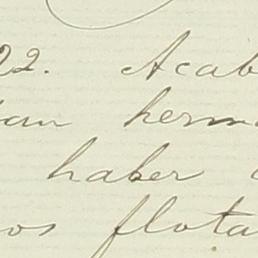 22. Acab
an herm
haber
os flota